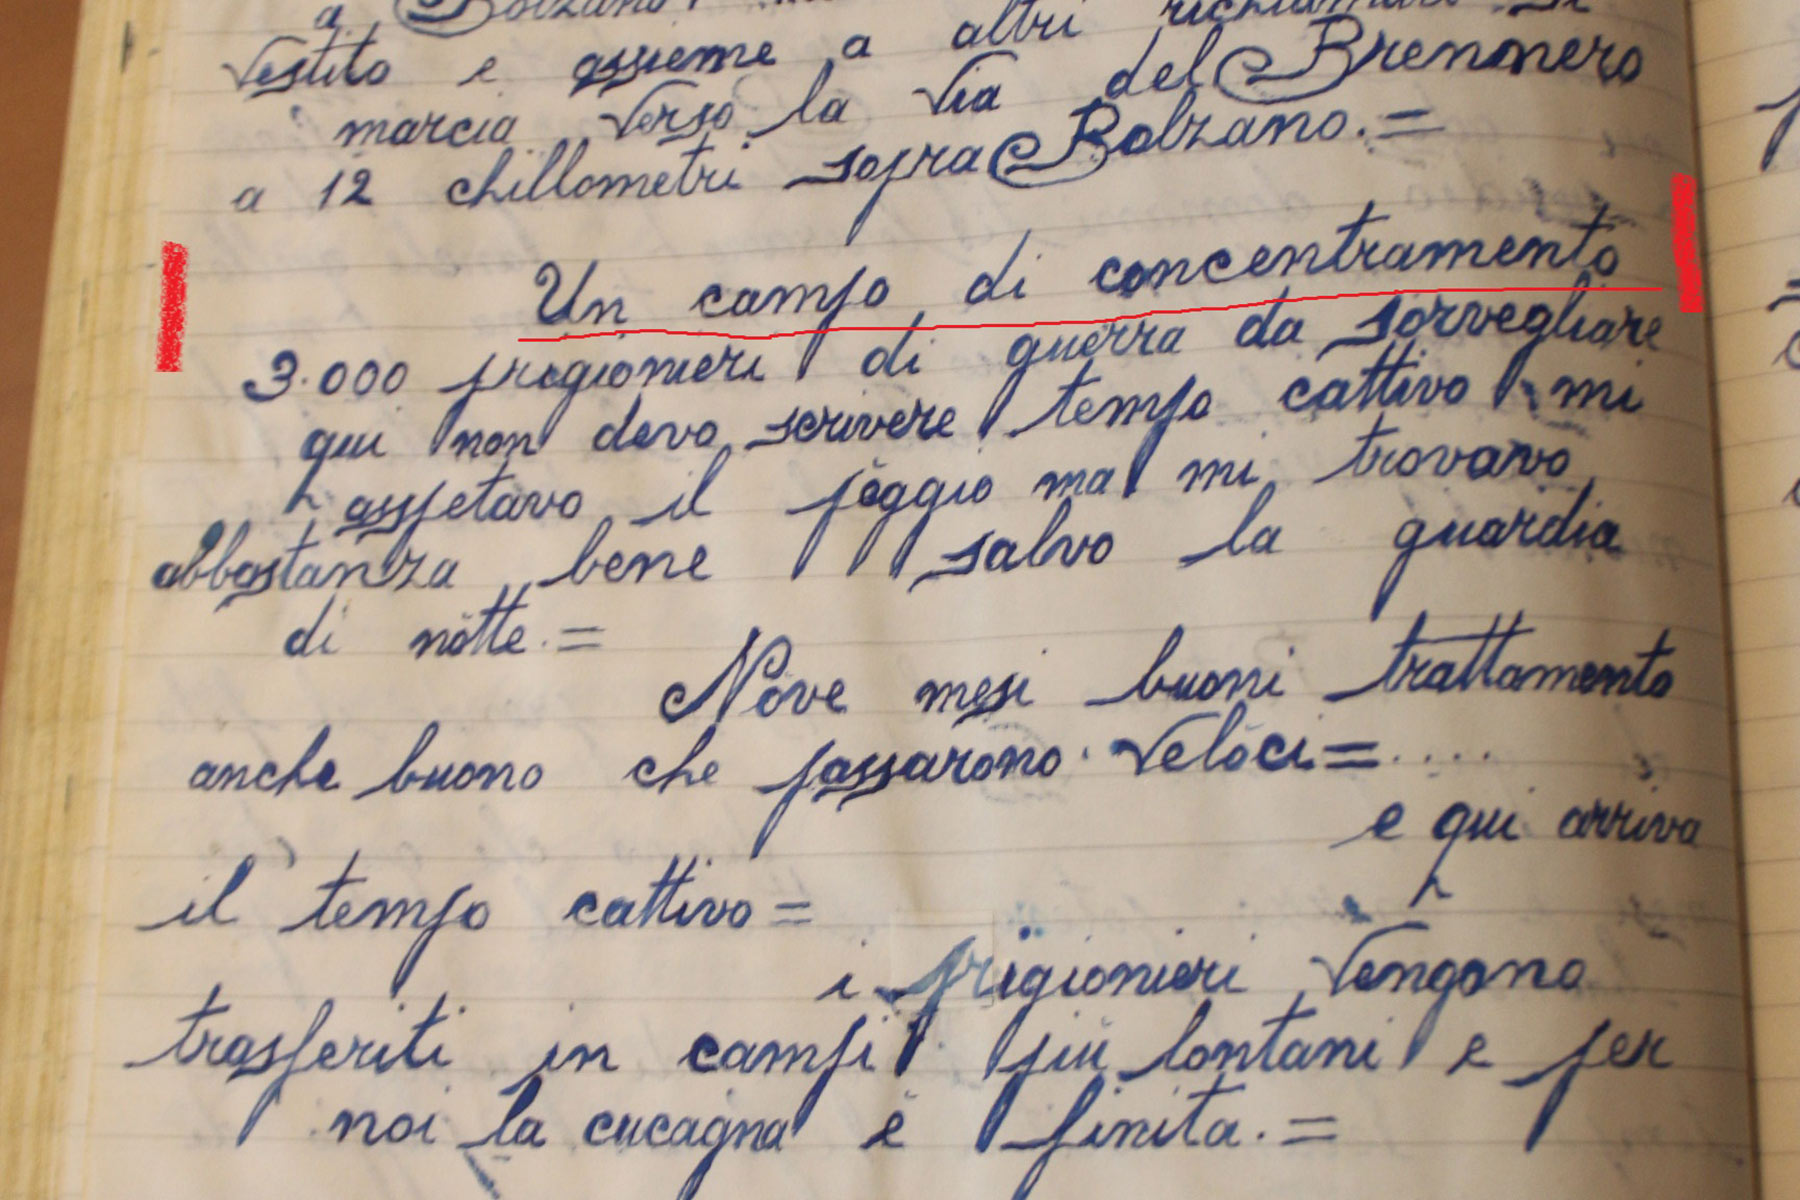 a Bolzano.
Vestito e assieme a altri richiamati si
marcia verso la via del Brennero
a 12 chillometri sopra Bolzano.=
Un campo di concentramento
3.000 prigionieri di guerra da sorvegliare
qui non devo scrivere tempo cattivo mi
aspetavo il pèggio ma mi trovavo
abbastanza bene salvo la guardia
di nòtte.=
Nòve mesi buoni trattamento
anche buono che passaròno velòci=.....
e qui arriva
il tempo cattivo=
i prigionieri vengono
trasferiti in campi più lontani e per
noi la cucagna è finita.=